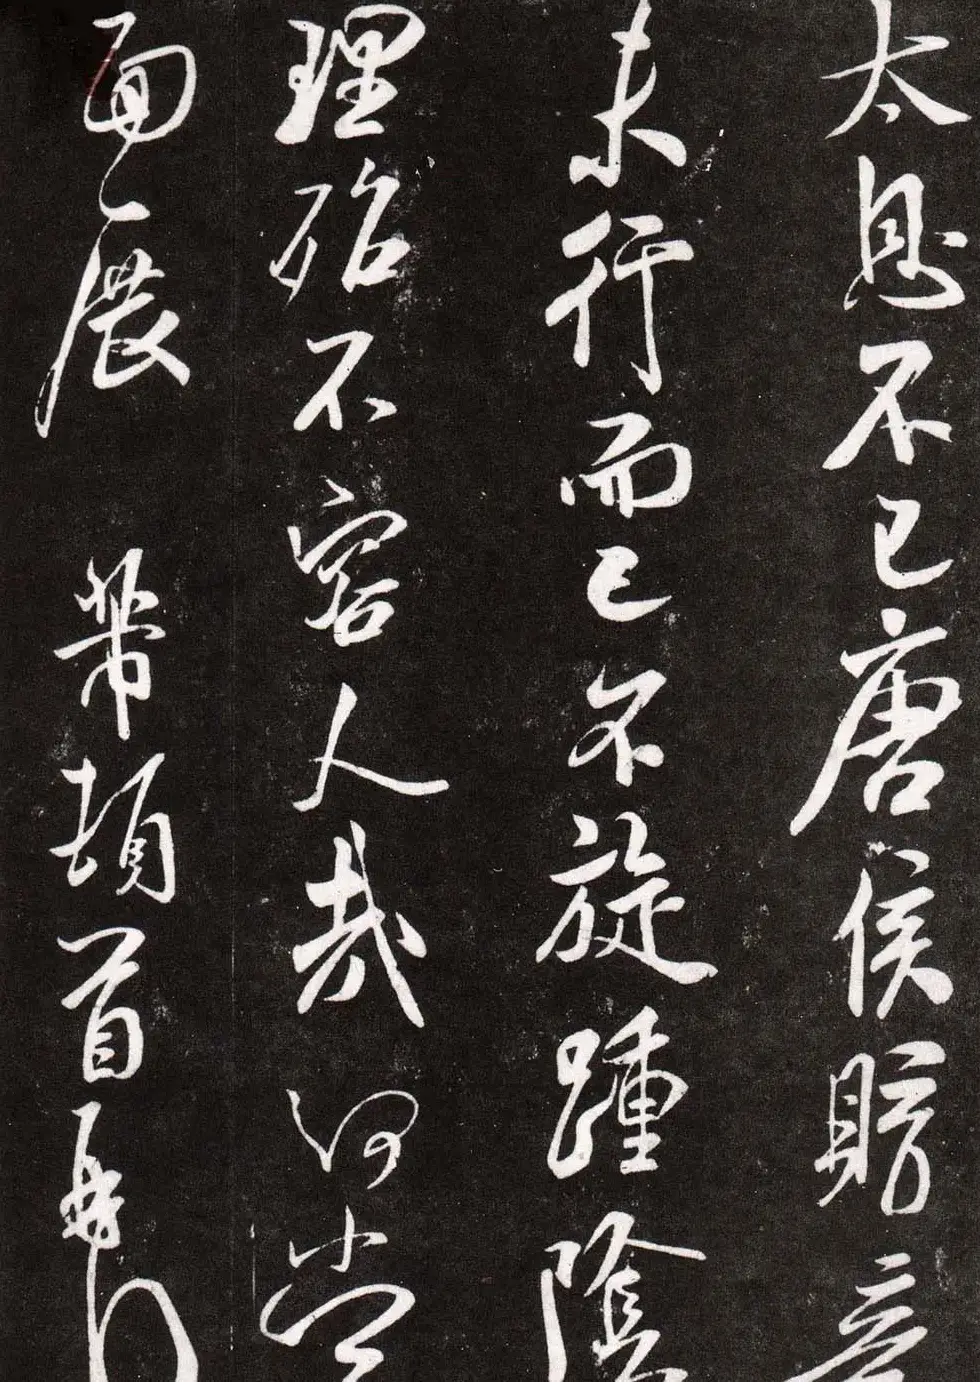 太息不已唐侯
未行而已不旋踵陰
理殆不容人哉何當
面展 芾頓首再拜